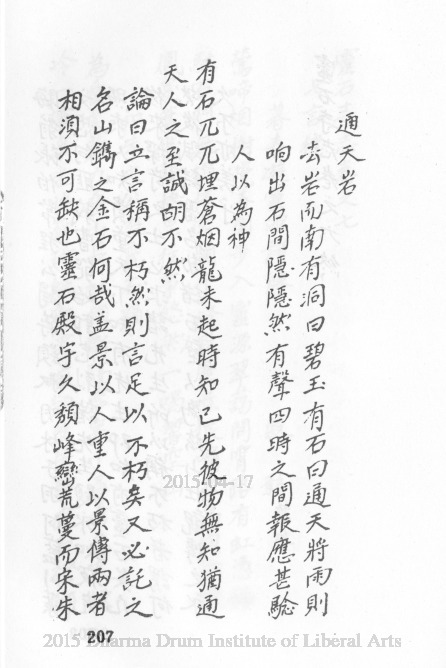 通天岩
去岩而南有洞曰碧玉有石曰通天將雨則
响出石間隱隱然有聲四時之間報應甚驗
人以為神
有石兀兀埋蒼烟龍未起時知已先彼物無知猶通
天人之至誠胡不然
論曰立言稱不朽然則言足以不朽矣又必託之
名山鐫之金石何哉盖景以人重人以景傳兩者
相須不可缺也靈石殿宇久頹峰巒荒蔓而宋朱
2015-04-17
207
2015 Dharma Drum Institute of Liberal Arts